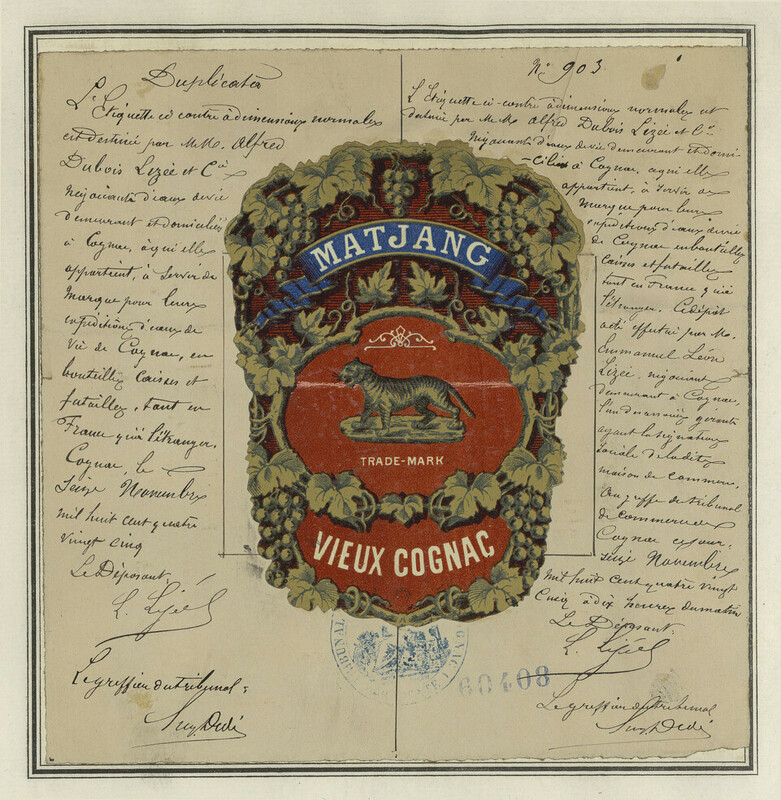 Duplicata
L'Etiquette ci contre à dimensions normales
est destiné par MM. Alfred
Dubois Lizée et Cie
négociants d'eaux de vie
demeurant et domiciliés
à Cognac, à qui elle
appartient, à servir de
marque pour leurs
expéditions d'eaux de
Vie de Cognac, en
bouteilles caisses et
futailles, tant en
France qu'à l'étranger.
Cognac, le
Seize Novembre
mil huit cent quatre
vingt cinq
Le Déposant
L. Lizée
Le greffier du tribunal
MATJANG
TRADE-MARK
VIEUX COGNAC
No 903.
L'Etiquette ci-contre à dimensions normales est
destinée par MM. Alfred Dubois Lizée et Cie
négociants d'eaux de vie demeurant et domi-
-ciliés à Cognac, à qui elle
appartient, à servir de
marque pour leurs
expéditions d'eaux de vie
de Cognac en bouteilles
caisses et futailles
tant en France qu'à
l'étranger. Ce dépôt
a été effectué par M.
Emmanuel Léon
Lizée négociant
demeurant à Cognac,
l'un des associés gérants
ayant la signature
sociale de la dite
maison de commerce,
au greffe du tribunal
de commerce de
Cognac ce jour,
seize Novembre
mil huit cent quatre vingt
cinq à dix heures du matin
Le Déposant:
L. Lizée
60408
Le greffier du tribunal